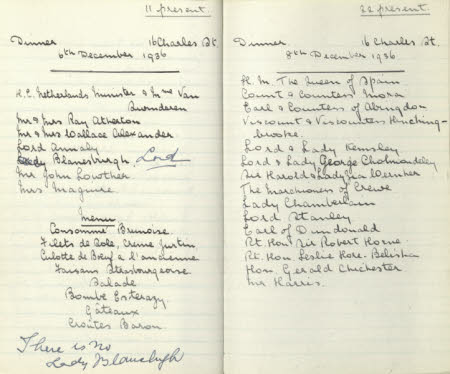 11 present.
Dinner 16 Charles St.
6th December 1936
H.E. Netherlands Minister & Mme Van
Swinderen
Mr & Mrs Ray Atherton
Mr & Mrs Wallace Alexander.
Lord Annaly
Lady Blanesburgh Lord
Mr John Lowther
Mrs Maguire
Menu
Consommé Brunoise.
Filets de Sole, Creme Justin
Culotte de Bœuf a l'ancienne
Faisans Strasbourgeoise
Salade
Bombe Esterazy
Gâteaux
Croûtes Baron.
There is no
Lady Blanesburgh
22 present.
Dinner. 16 Charles St.
8th December 1936
H.M. The Queen of Spain
Count & Countess Mora
Earl & Countess of Abingdon
Viscount & Viscountess Hinching-
brooke.
Lord & Lady Kemsley
Lord & Lady George Cholmondeley
Sir Harold & Lady Zia Wernher
The Marchioness of Crewe
Lady Chamberlain
Lord Stanley
Earl of Dundonald
Rt Hon Sir Robert Horne.
Rt. Hon Leslie Hore-Belisha
Hon Gerald Chichester
Mr Harris.